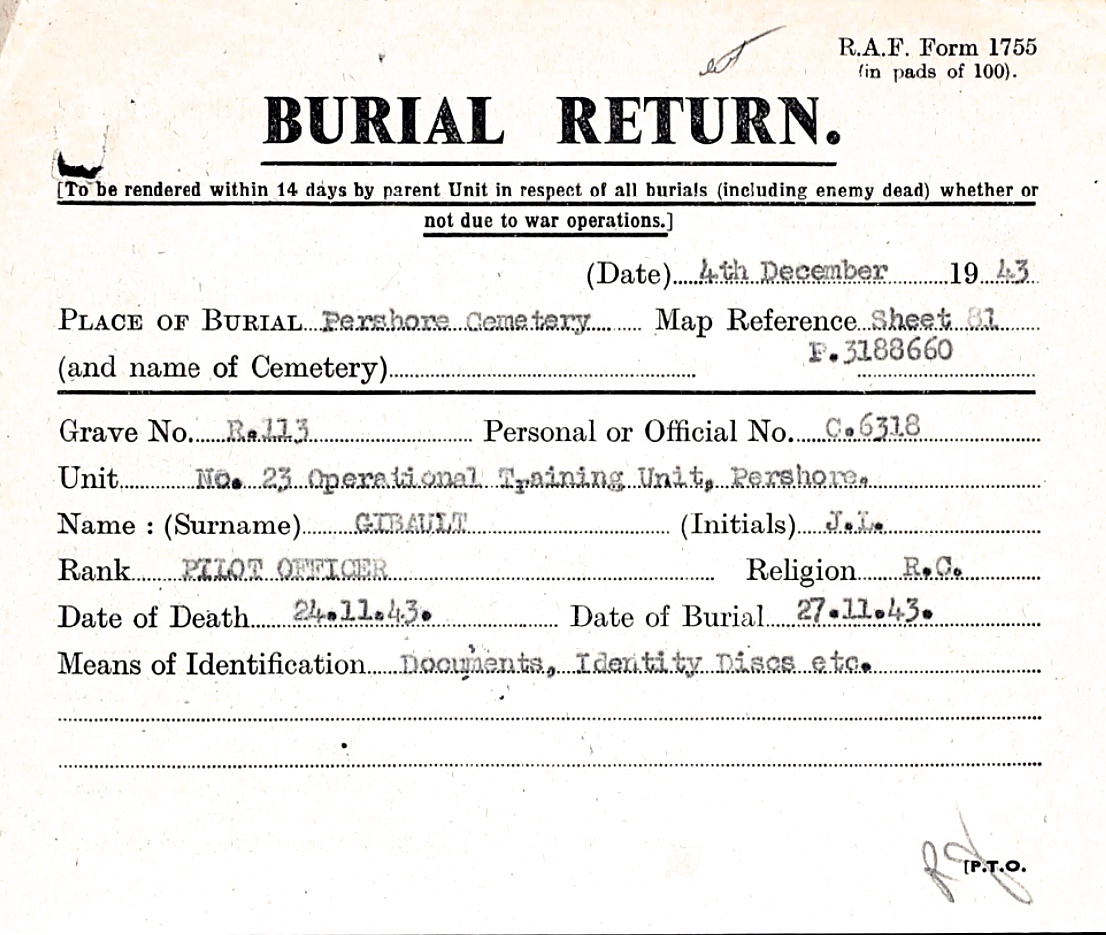 R.A.F. Form 1755
(in pads of 100).
BURIAL RETURN.
[To be rendered within 14 days by parent Unit in respect of all burials (including enemy dead) whether or
not due to war operations.]
(Date) 4th December 19 43
PLACE OF BURIAL Pershore Cemetery Map Reference Sheet 81
(and name of Cemetery) P.3188660
Grave No. R.113 Personal or Official No. C.6318
Unit No. 23 Operational Training Unit, Pershore.
Name : (Surname) GIBAULT (Initials) J.L.
Rank PILOT OFFICER Religion R.C.
Date of Death 24.11.43. Date of Burial 27.11.43.
Means of Identification Documents, Identity Discs etc.
[P.T.O.